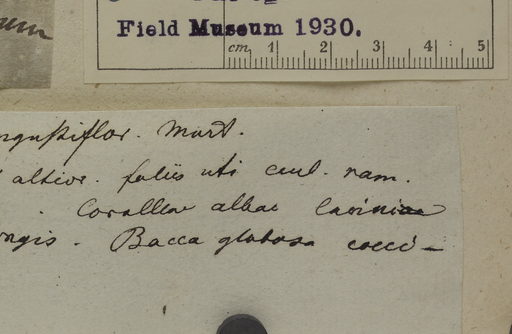 Field Museum 1930.
cm 1 2 3 4 5
ngustiflor. Mart.
altior. foliis uti caul. ram.
. Corollae albae laciniae
ongis. Bacca globosa cocci-